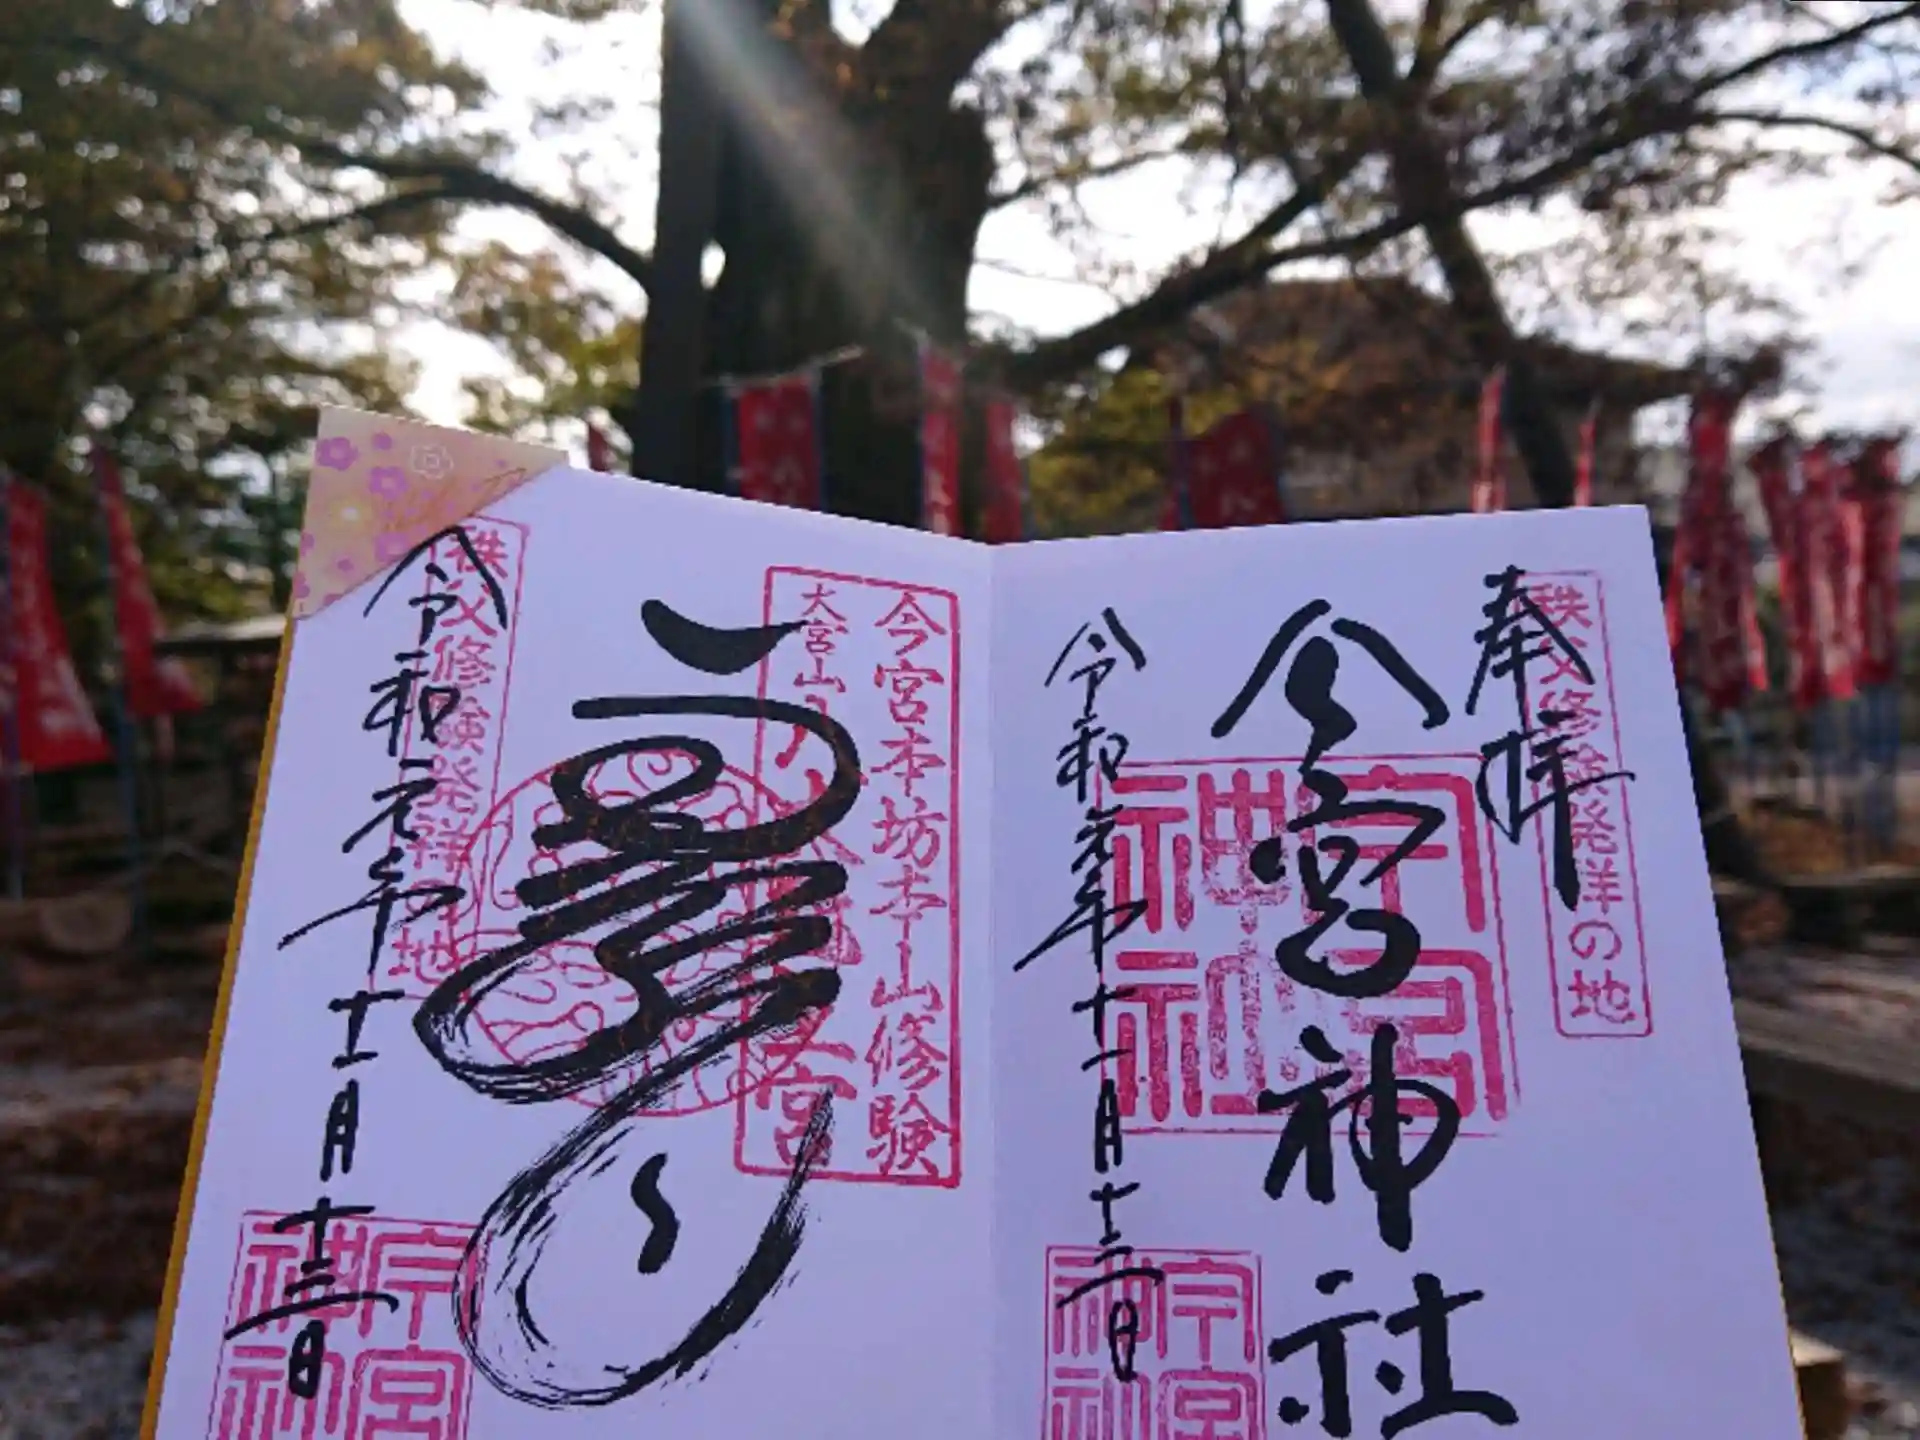 秩父修験発祥の地
奉拝
今宮神社
今宮神社
令和元年十一月十三日
今宮神社
今宮本坊本山修験
大宮山
宮
秩父修験発祥の地
令和元年十一月十三日
今宮神社